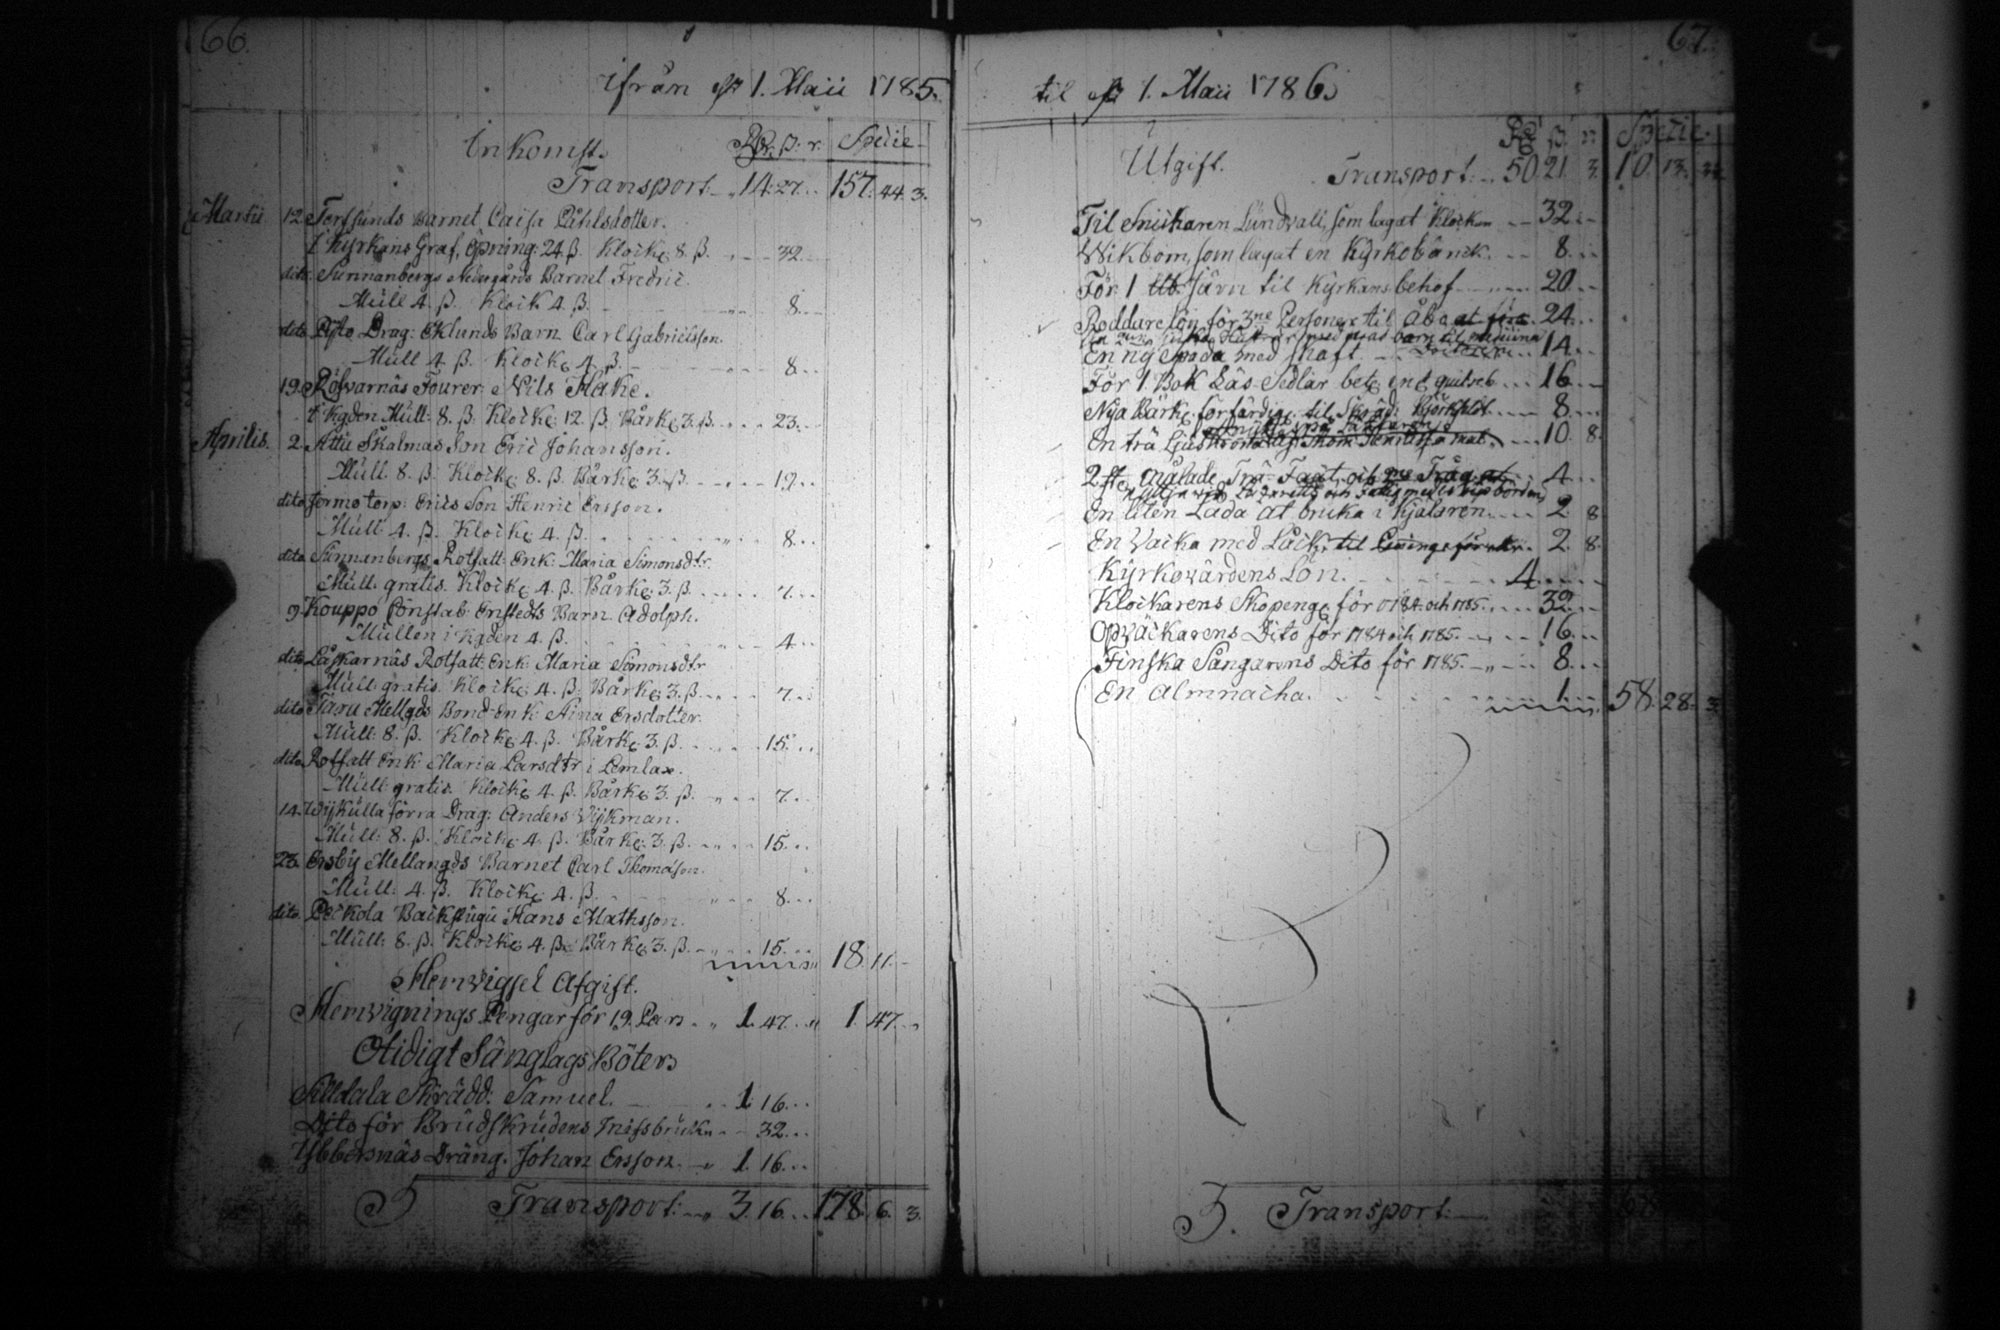 66.
ifrån d. 1. Maii 1785.
Inkomst. Rdr. ß. r. Specie
Transport 14. 27. 157. 44. 3.
Martii 12. Forssunds Barnet Caisa Påhlsdotter.
i Kyrkans Graf, öpning: 24. ß. Klocke 8. ß. 32.
dito Sunnanbergs Nedergårds Barnet Fredric.
Mull 4. ß. Klock 4. ß. 8.
dito Drag: Eklunds Barn Carl Gabrielsson.
Mull 4. ß. Klocke 4. ß. 8.
19. Röfvarnäs Fourer: Nils Flake.
i Kgden Mull: 8. ß. Klocke 12. ß. Bårke 3. ß. 23.
Aprilis. 2. Attu Skalmas Son Eric Johansson.
Mull 8. ß. Klocke 8. ß. Bårke 3. ß. 19.
dito Jermo torp: Erics Son Henric Ersson.
Mull: 4. ß. Klocke 4. ß. 8.
dito Sunnanbergs Rotfatt: Enk: Maria Simonsdtr.
Mull: gratis. Klocke 4. ß. Bårke 3. ß. 7.
9. Kouppo Constab: Enstedts Barn Adolph.
Mullen i Kgden 4. ß. 4.
dito Låskarnäs Rotfatt: Enk: Maria Simonsdtr
Mull: gratis. Klocke 4. ß. Bårke 3. ß. 7.
dito Tavu Mellgds Bond-Enk: Anna Ersdotter.
Mull: 8. ß. Klocke 4. ß. Bårke 3. ß. 15.
dito Rotfatt Enk: Maria Larsdtr i Lemlax.
Mull: gratis. Klocke 4. ß. Bårke 3. ß. 7.
14. Wijkulla förra Drag: Anders Wijkman.
Mull: 8. ß. Klocke 4. ß. Bårke 3. ß. 15.
23. Ersby Mellangds Barnet Carl Thomasson.
Mull: 4. ß. Klocke 4. ß. 8.
dito Pockola Backstugu Hans Mathsson.
Mull: 8. ß. Klocke 4. ß. Bårke 3. ß. 15. 18. 11.
Hemvigsel Afgift.
Hemvignings Pengar för 19. Par. 1. 47. 1. 47.
Otidigt Sänglags Böter
Silldala Skrädd: Samuel. 1. 16.
Dito för Brudskrudens missbruk 32.
Ybbersnäs Dräng. Johan Ersson. 1. 16.
Transport: 3. 16. 178. 6. 3.
67.
til d. 1. Maii 1786
Utgift. ß. r. Specie.
Transport: 50. 21. 3. 10. 13.
Til Snickaren Lundvall, som lagat Klockan 32.
Wikbom, som lagat en Kyrkobänck. 8.
För 1 Järn til Kyrkans behof 20.
Roddare lön för 3ne Personer til Åbo at föra 24.
En ny Spada med skaft. 14.
För 1. Bok Läs-Sedlar 16.
Nya Bårke förfärdig: til 8.
En trä 10. 8.
2. st. målade Trä-Faat, och 4.
En liten Låda at bruka i Kjälaren 2. 8.
En Vacka med Låck, til 2. 8.
Kyrkovärdens Lön. 4.
Klockarens Skopenge för 1784 och 1785. 32.
Opväckarens Dito för 1784 och 1785. 16.
Finska Sångarens Dito för 1785. 8.
En Almnacka. 1. 58. 28. 3.
Transport: